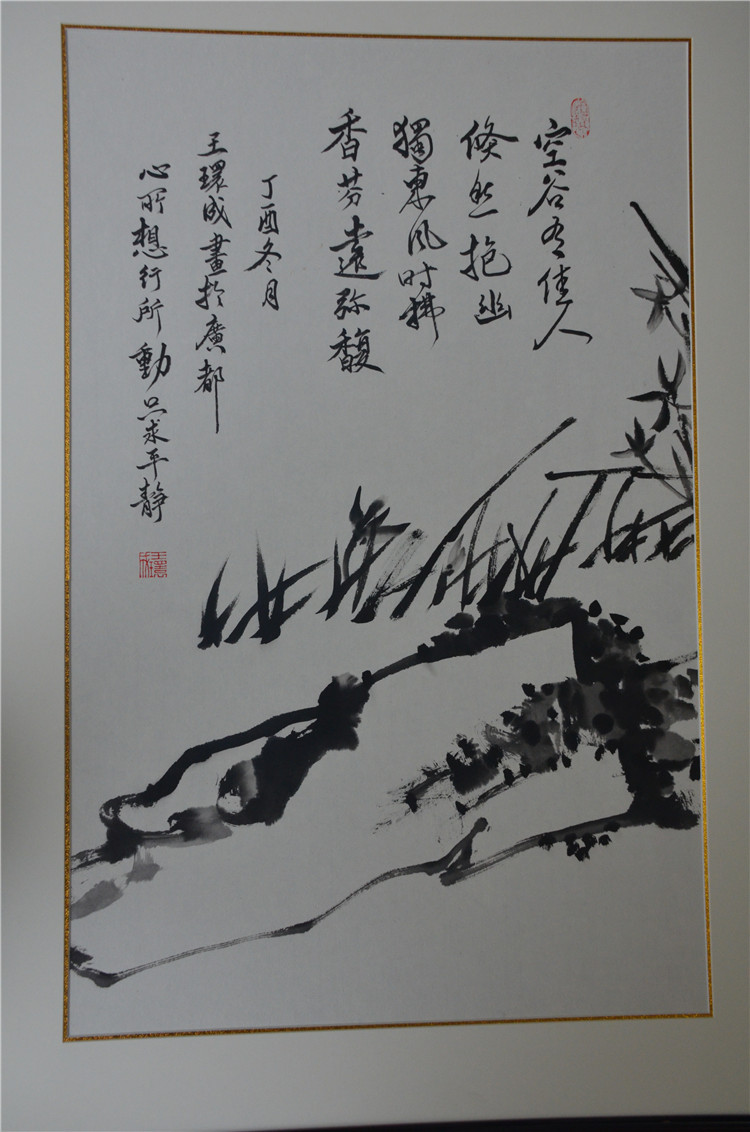 空谷有佳人
倏然抱幽
獨東风时拂
香芬遠弥馥
丁酉冬月
王環成畫於廣都
心所想行所動只求平靜